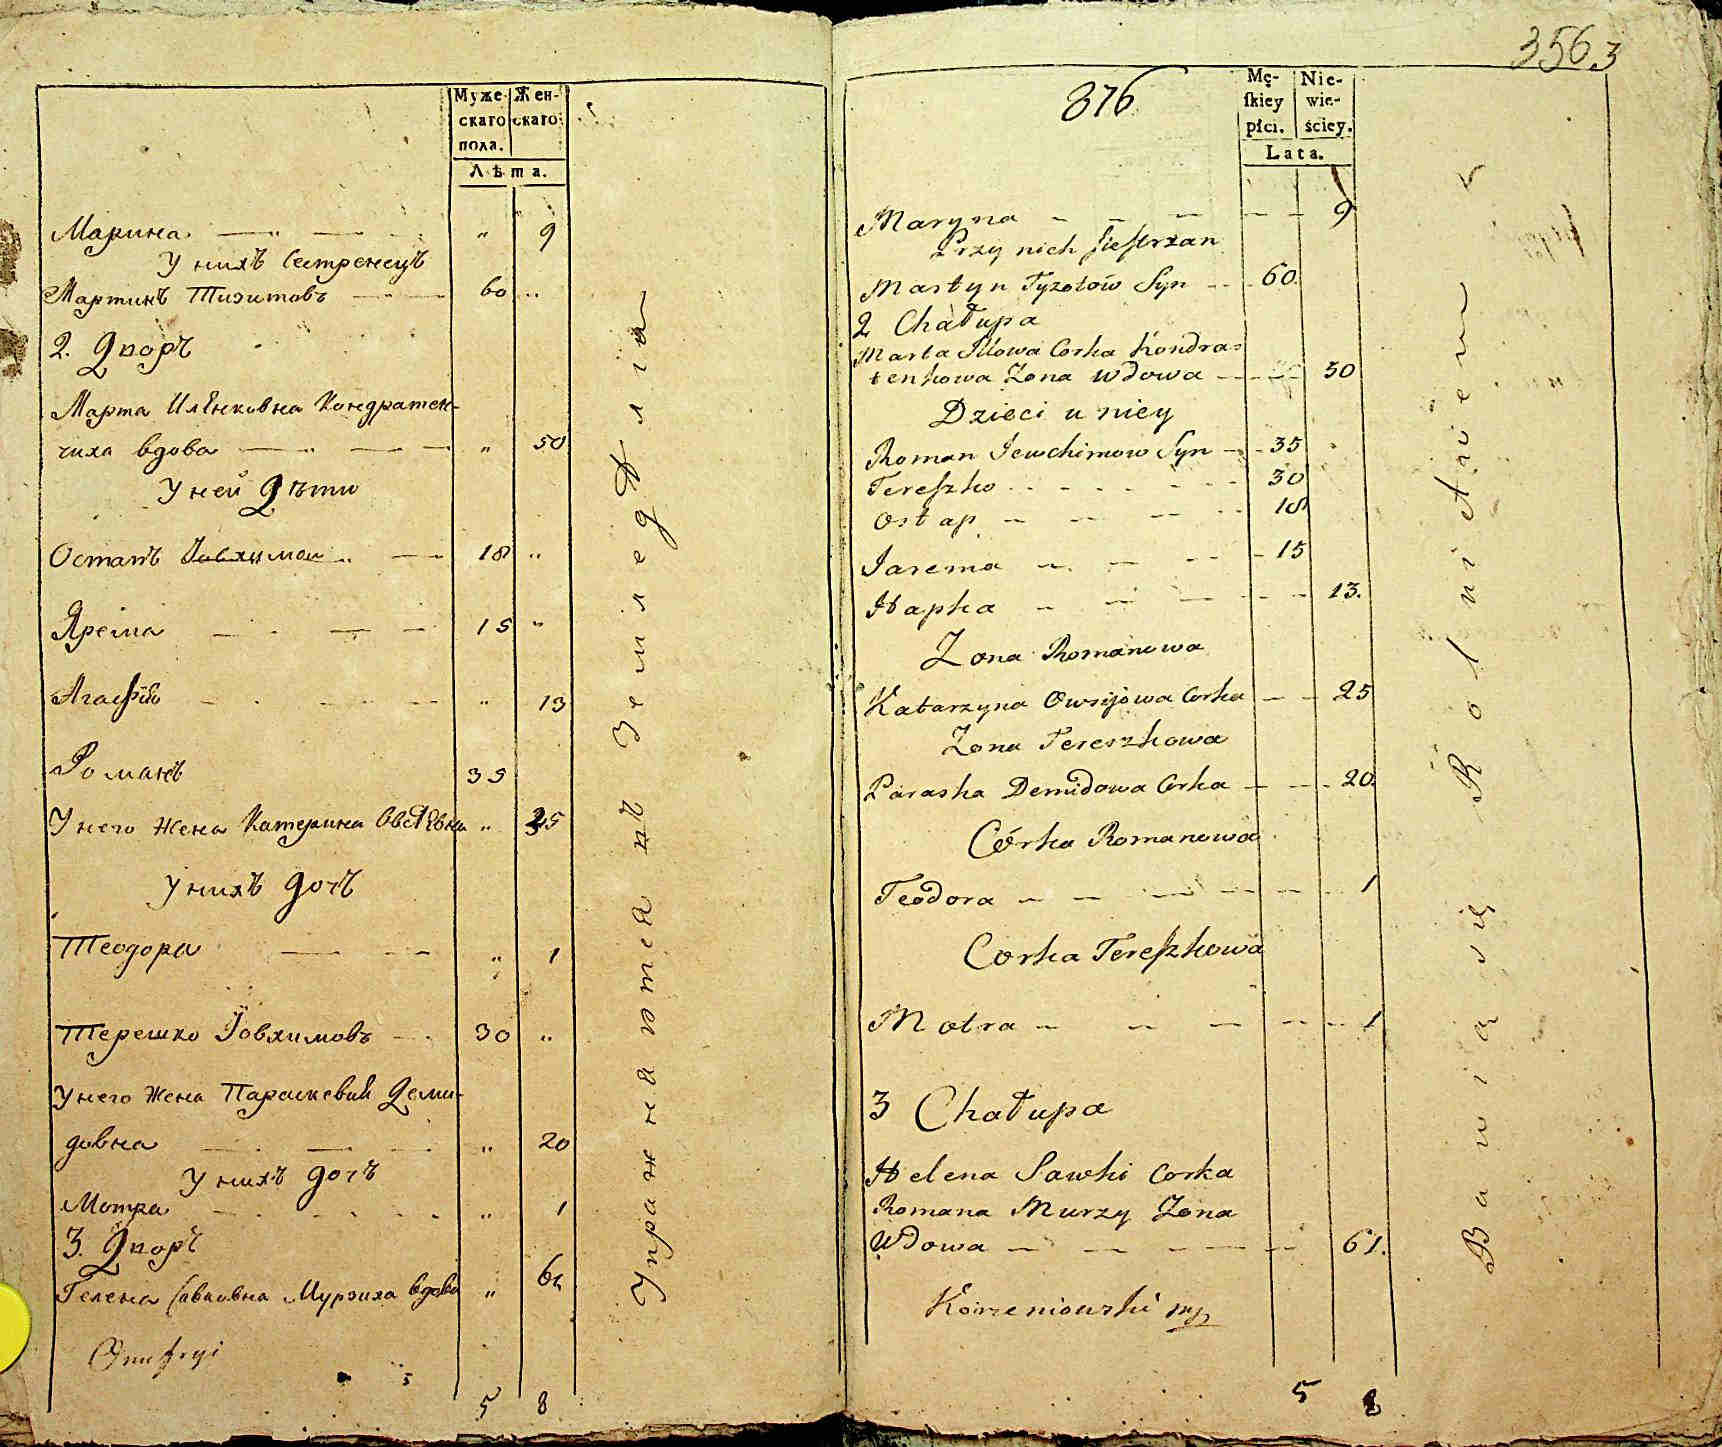 Муже- Жен-
скаго скаго
пола.
Лѣта.
Марина „ 9
У нихъ Сестренецъ
Мартинъ Тизитовъ 60 „
2. Дворъ
Марта Илѣнковна Кондратен-
чиха вдова „ 50
У ней Дѣти
Остапъ 18 „
Ярема 15 „
Агафiя „ 13
Романъ 35
У него Жена Катерина Овсѣевна „ 25
У нихъ дочъ
Теодора „ 1
Терешко Iовхимовъ 30 „
У него Жена Параскевия Деми-
довна „ 20
У нихъ дочъ
Мотра „ 1
3. Дворъ
Гелена Савковна Мурзиха вдова „ 61
Onufryi
5 8
Упражняются въ Земледѣлiи
356
3
876
Mę- Nie-
ſkiey wie-
płci. ściey.
Lata.
Maryna 9
Przy nich Sieſtrzan
Martyn Tyzotów Syn 60
2 Chałupa
Marta Jlkowa Corka Kondra-
tenkowa Zona Wdowa 50
Dzieci u niey
Roman Jewchimow Syn 35
Tereſzko 30
Ostap 18
Jarema 15
Hapka 13.
Zona Romanowa
Katarzyna Owsijowa Corka 25
Zona Tereszkowa
Paraska Demidowa Corka 20.
Córka Romanowa
Teodora 1
Corka Tereſzkowa
Motra 1
3 Chałupa
Helena Sawki Corka
Romana Murzy Zona
Wdowa 61.
Korzeniowski mp
5 8
Bawią się Rolnictwem